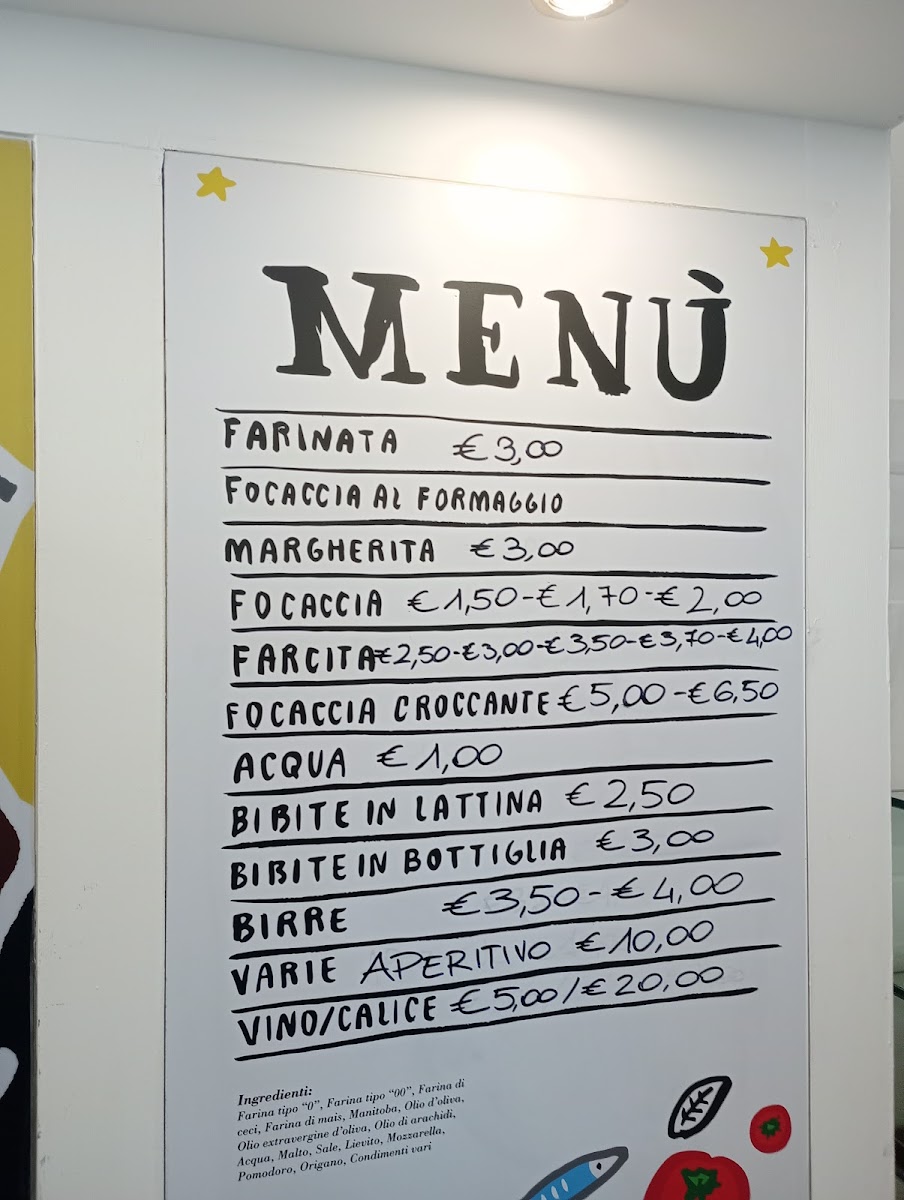 MENÙ
FARINATA € 3,00
FOCACCIA AL FORMAGGIO
MARGHERITA € 3,00
FOCACCIA € 1,50 - € 1,70 - € 2,00
FARCITA € 2,50 - € 3,00 - € 3,50 - € 3,70 - € 4,00
FOCACCIA CROCCANTE € 5,00 - € 6,50
ACQUA € 1,00
BIBITE IN LATTINA € 2,50
BIBITE IN BOTTIGLIA € 3,00
BIRRE € 3,50 - € 4,00
VARIE APERITIVO € 10,00
VINO/CALICE € 5,00 / € 20,00
Ingredienti:
Farina tipo “0”, Farina tipo “00”, Farina di
ceci, Farina di mais, Manitoba, Olio d’oliva,
Olio extravergine d’oliva, Olio di arachidi,
Acqua, Malto, Sale, Lievito, Mozzarella,
Pomodoro, Origano, Condimenti vari